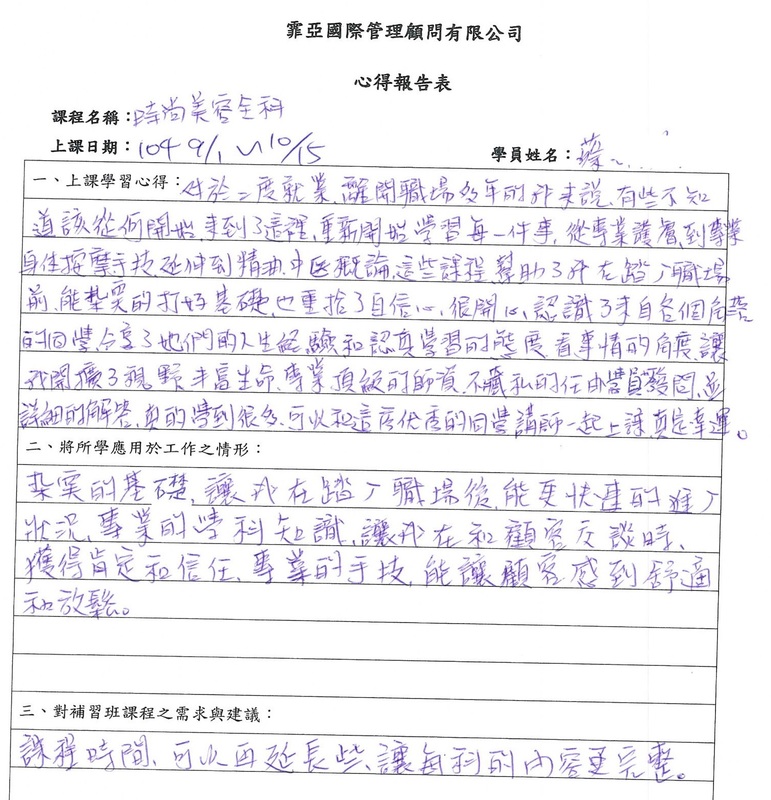 霏亞國際管理顧問有限公司
心得報告表
課程名稱：時尚美容全科
上課日期：104 9/1 ~ 10/15
學員姓名：蔡
一、上課學習心得：対於二度就業，離開職場多年的我來說，有些不知
道該從何開始，來到了這裡，重新開始學習每一件事，從專業護膚，到專業
身体按摩手技延伸到精油，中医概論，這些課程幫助了我在踏入職場
前，能紮實的打好基礎，也重拾了自信心，很開心，認識了來自各個角落
的同學分享了她們的人生經驗和認真學習的態度，看事情的角度，讓
我開擴了視野，丰富生命，專業頂級的師資，不藏私的任由學員發問，並
詳細的解答，真的學到很多，可以和這麼优秀的同學講師一起上課真是幸運。
二、將所學應用於工作之情形：
紮實的基礎，讓我在踏入職場後，能更快速的進入
狀況，專業的學科知識，讓我在和顧客交談時、
獲得肯定和信任，專業的手技，能讓顧客感到舒適
和放鬆。
三、對補習班課程之需求與建議：
課程時間，可以再延長些，讓每科的內容更完整。